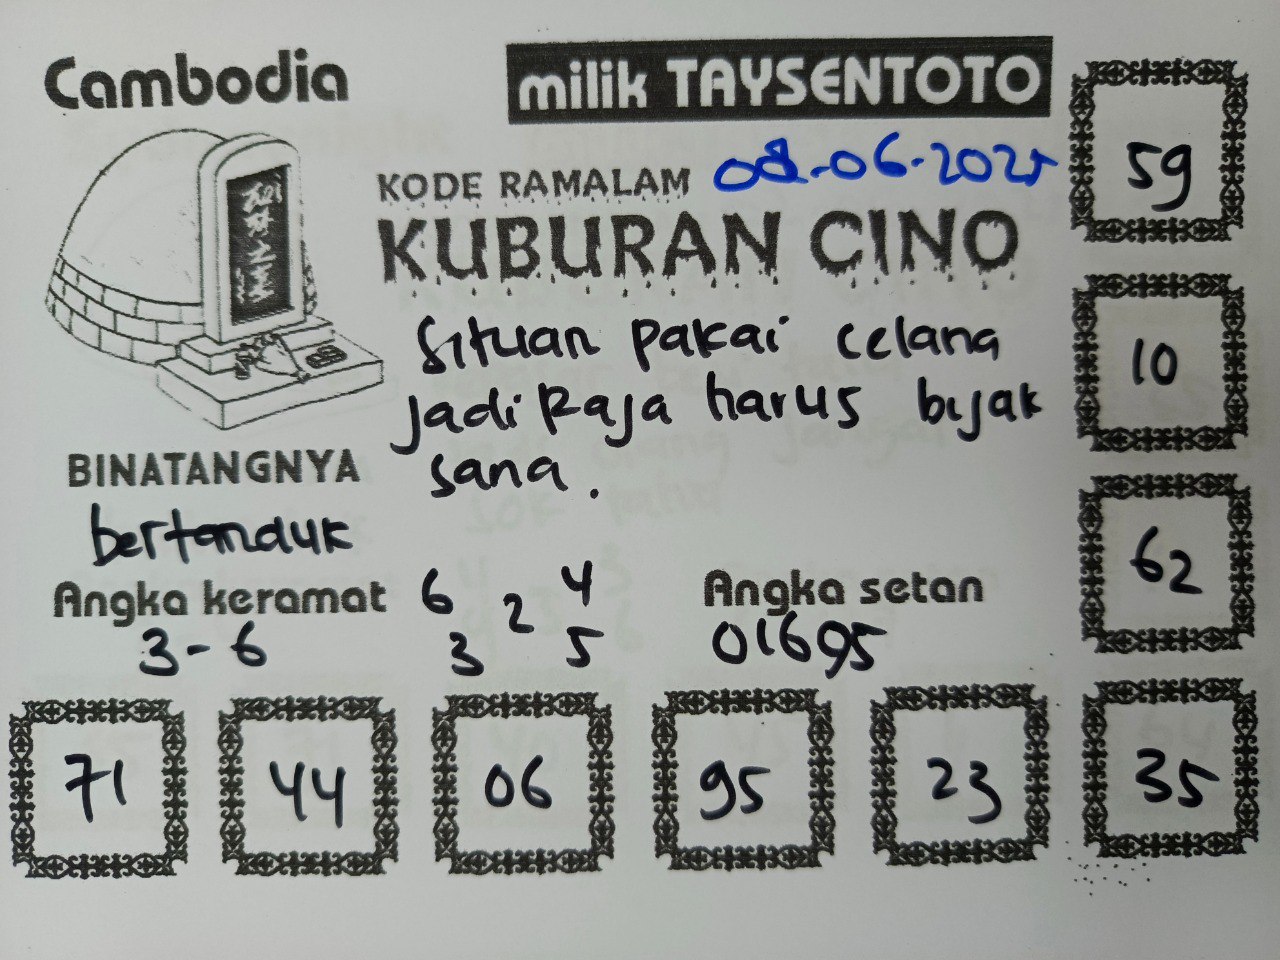 Cambodia
milik TAYSENTOTO
KODE RAMALAM 08-06-2025
KUBURAN CINO
Situan pakai celana
jadi Raja harus bijak
sana.
BINATANGNYA
bertanduk
Angka keramat
3-6
6 4
2
3 5
Angka setan
01695
59
10
62
35
71 44 06 95 23